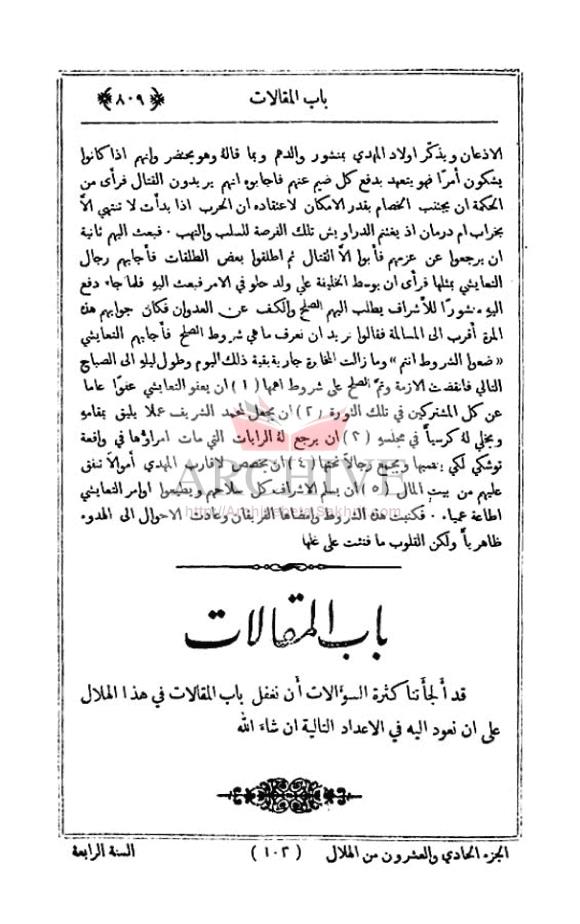 باب المقالات
﴿ ٨٠٩ ﴾
الاذعان ويذكّر اولاد المهدي بمنشور والدهم وبما قالهُ وهو يحتضر وانهم اذا كانوا
يشكون أمرًا فهو يتعهد بدفع كل ضيم عنهم فاجابوهُ انهم يريدون القتال فرأى من
الحكمة ان يجتنب الخصام بقدر الامكان لاعتقاده ان الحرب اذا بدأت لا تنتهي الاَّ
بخراب ام درمان اذ يغتنم الدراويش تلك الفرصة للسلب والنهب ٠ فبعث اليهم ثانية
ان يرجعوا عن عزمهم فأبوا الاَّ القتال ثم اطلقوا بعض الطلقات فأجابهم رجال
التعايشي بمثلها فرأى ان يوسط الخليفة علي ولد حلو في الامر فبعث اليهِ فلما جاء دفع
اليهِ منشورًا للأشراف يطلب اليهم الصلح والكف عن العدوان فكان جوابهم هذه
المرة أقرب الى المسالمة فقالوا نريد ان نعرف ما هي شروط الصلح فأجابهم التعايشي
«ضعوا الشروط انتم» وما زالت المخابرة جارية بقية ذلك اليوم وطول ليلهِ الى الصباح
التالي فانقضت الازمة وتمَّ الصلح على شروط اهمها (١) ان يعفو التعايشي عفوًا عاما
عن كل المشتركين في تلك الثورة (٢) ان يجعل لمحمد الشريف عملا يليق بمقامهِ
ويخلي لهُ كرسياً في مجلسهِ (٣) ان يرجع لهُ الرايات التي مات امراؤها في واقعة
توشكي لكي ينصبها ويجمع رجالاً تحتها (٤) ان يخصص لاقارب المهدي أموالاً تنفق
عليهم من بيت المال (٥) أن يسلم الاشراف كل سلاحهم ويطيعوا اوامر التعايشي
اطاعة عمياء ٠ فكتبت هذه الشروط وامضاها الفريقان وعادت الاحوال الى الهدوء
ظاهرياً ولكن القلوب ما فتئت على غلها
ARCHIVE
http://Archivebeta.Sakhrit.com
باب المقالات
قد ألجأتنا كثرة السؤالات أن نغفل باب المقالات في هذا الهلال
على ان نعود اليه في الاعداد التالية ان شاء الله
الجزء الحادي والعشرون من الهلال (١٠٢) السنة الرابعة